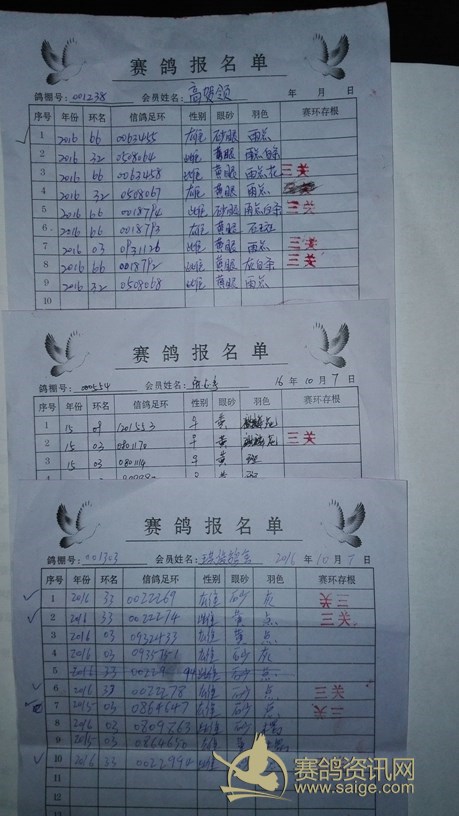 赛鸽报名单
鸽棚号: 001238 会员姓名: 年 月 日
序号 年份 环名 信鸽足环 性别 眼砂 羽色 赛环存根
1 2016 66 0063455 雄 砂眼 雨点
2 2016 32 0508064 雌 黄眼 雨点白条
3 2016 66 0063458 雌 黄眼 雨点花 三关
4 2016 32 0508067 雄 黄眼 雨点
5 2016 66 0018794 雌 砂眼 雨点白条 三关
6 2016 66 0018793 雄 黄眼
7 2016 03 0931126 雌 黄眼 雨点 三关
8 2016 66 0018792 雌 黄眼 灰白条 三关
9 2016 32 0508068 雌 黄眼 雨点
10
赛鸽报名单
鸽棚号: 000554 会员姓名: 16 年 10 月 7 日
序号 年份 环名 信鸽足环 性别 眼砂 羽色 赛环存根
1 15 1201553 黄
2 15 03 0801170 黄 三关
3 15 03 0801114 黄 斑
赛鸽报名单
鸽棚号: 001303 会员姓名: 2016 年 10 月 7 日
序号 年份 环名 信鸽足环 性别 眼砂 羽色 赛环存根
1 2016 33 0022269 雄 砂 灰 三关
2 2016 33 0022274 雌 黄 点 三关
3 2016 03 0932433 雄 黄 点
4 2016 03 雄 砂 灰
5 2016 33 砂 点
6 2016 33 0022278 雄 砂 点 三关
7 2015 03 0864647 雄 砂 点 三关
8 2016 03 0809263
9 2015 03 0864650
10 2016 33 0022994
11
12
赛鸽资讯网
www.saige.com